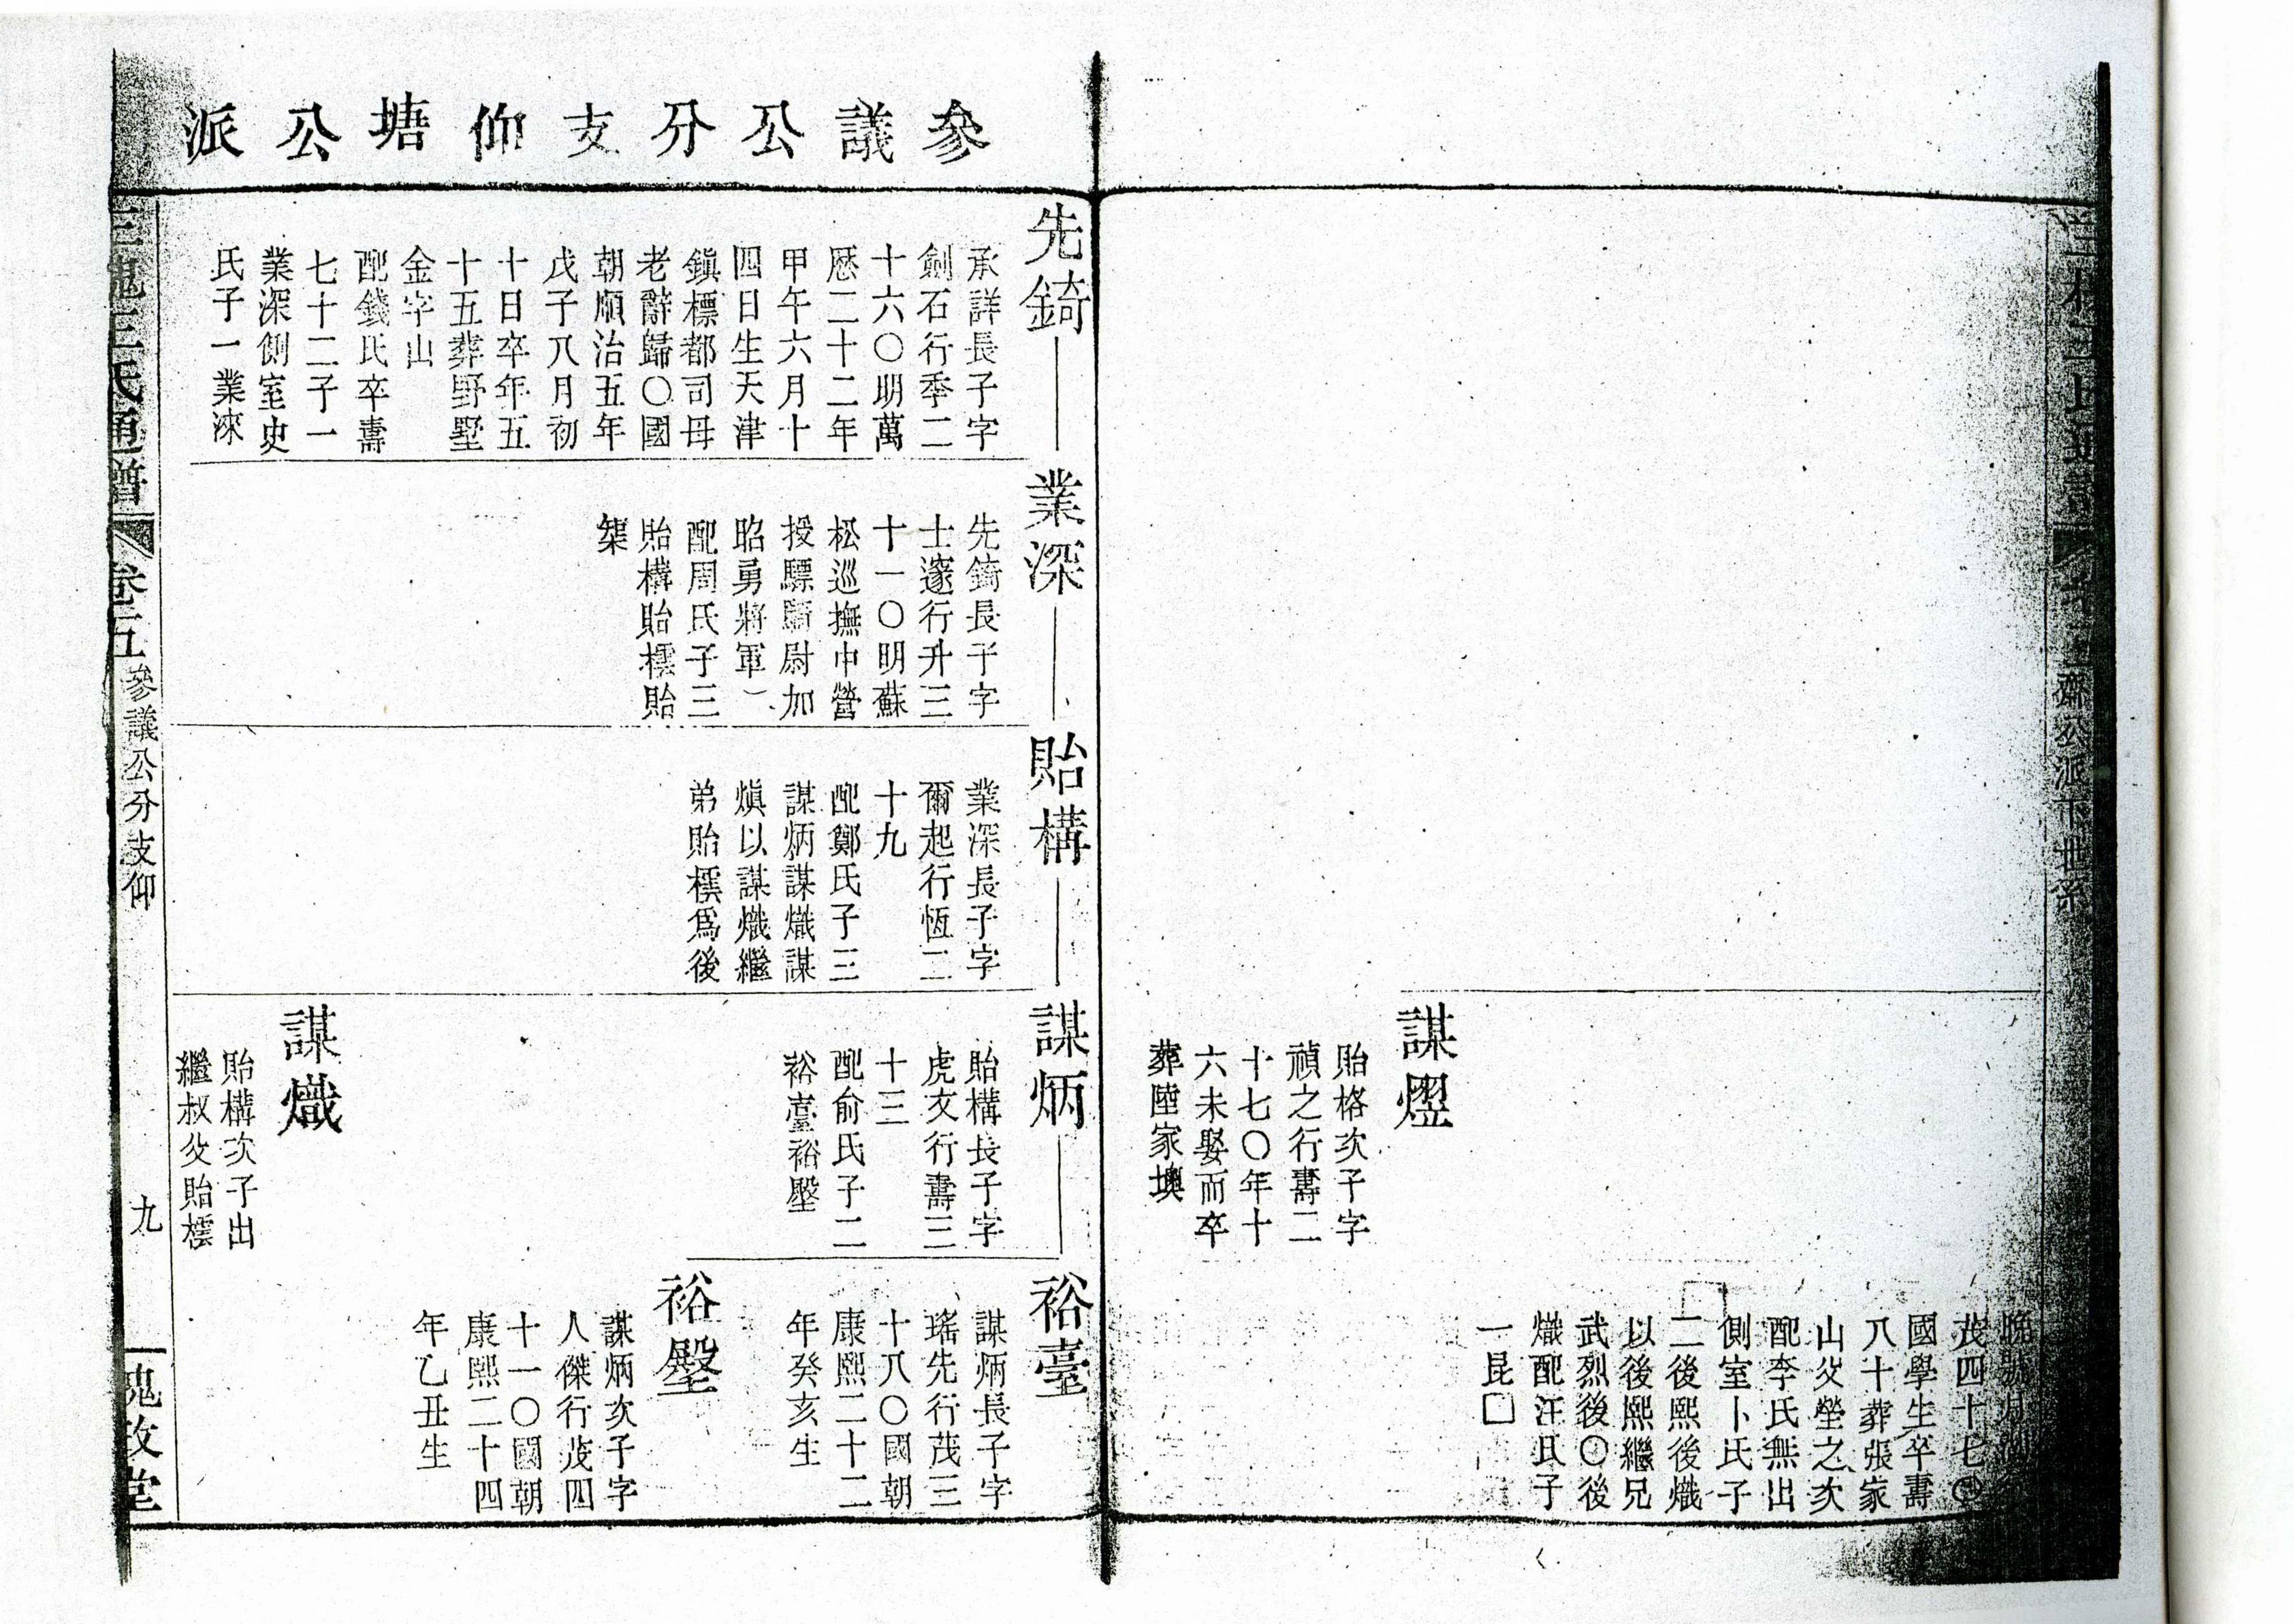 齋公派下世系
茂四十七
國學生卒壽
八十葬張家
山父塋之次
配李氏無出
側室卜氏子
二後熙後熾
以後熙繼兄
武烈後〇後
熾配汪氏子
一昆□
謀熤
貽格次子字
禎之行壽二
十七〇年十
六未娶而卒
葬陸家墺
參議公分支仰塘公派
先錡
承詳長子字
劍石行季二
十六〇明萬
厯二十二年
甲午六月十
四日生天津
鎭標都司母
老辭歸〇國
朝順治五年
戊子八月初
十日卒年五
十五葬野墅
金字山
配錢氏卒壽
七十二子一
業深側室史
氏子一業淶
業深
先錡長子字
士邃行升三
十一〇明蘇
松巡撫中營
授驃騎尉加
昭勇將軍
配周氏子三
貽構貽橒貽
榘
貽構
業深長子字
爾起行恆二
十九
配鄭氏子三
謀炳謀熾謀
熉以謀熾繼
弟貽橒爲後
謀炳
貽構長子字
虎文行壽三
十三
配俞氏子二
裕臺裕墍
謀熾
貽構次子出
繼叔父貽橒
裕臺
謀炳長子字
瑤先行茂三
十八〇國朝
康熙二十二
年癸亥生
裕墍
謀炳次子字
人傑行茂四
十一〇國朝
康熙二十四
年乙丑生
三槐王氏通譜
卷五
參議公分支仰
九
槐政堂